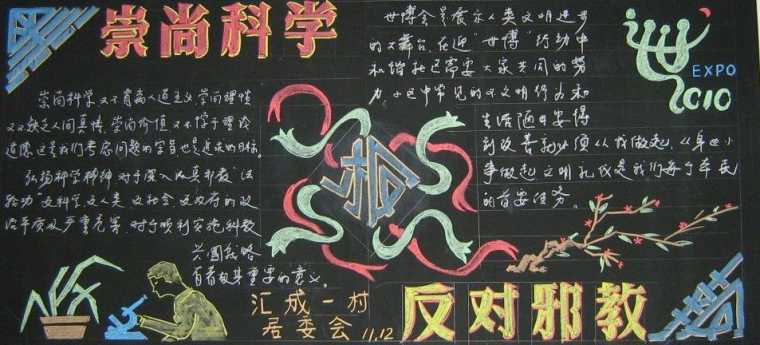 崇尚科学
崇尚科学又不背离人道主义,崇尚理性
又不缺乏人间真情,崇尚价值又不悖于理论
道德这是我们考虑问题的宗旨也是追求的目标。
弘扬科学精神对于深入"法
轮功"反科学、反人类、反社会、反政府的政
治本质及严重危害,对于顺利实施科教
兴国战略
有着极其重要的意义。
世博会是展示人类文明进步
的大舞台,在迎"世博"行动中
和谐社区需要大家共同的努
力,小区中常见的不文明行为和
生活陋习要得
到改善就必须从我做起,从身边小
事做起,文明礼仪是我们每个居民
的首要任务。
EXPO
2010
汇成一村
居委会 11.12
反对邪教